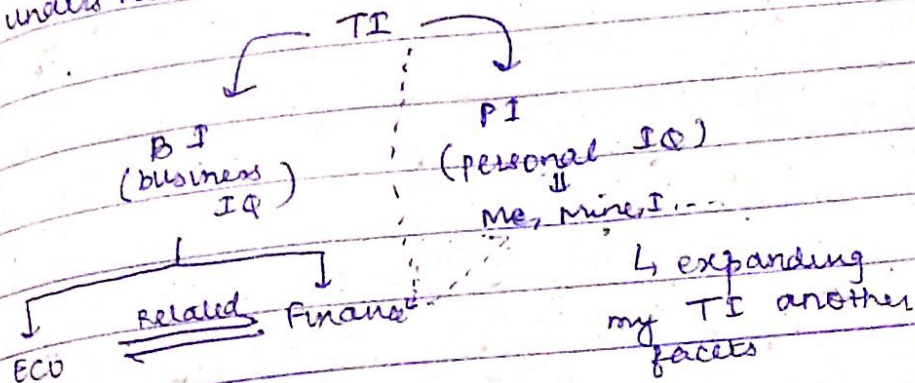 TI
BI
(business
IQ)
PI
(personal IQ)
Me, Mine, I....
↳ expanding
my TI another
facets
ECO
Related
Finance